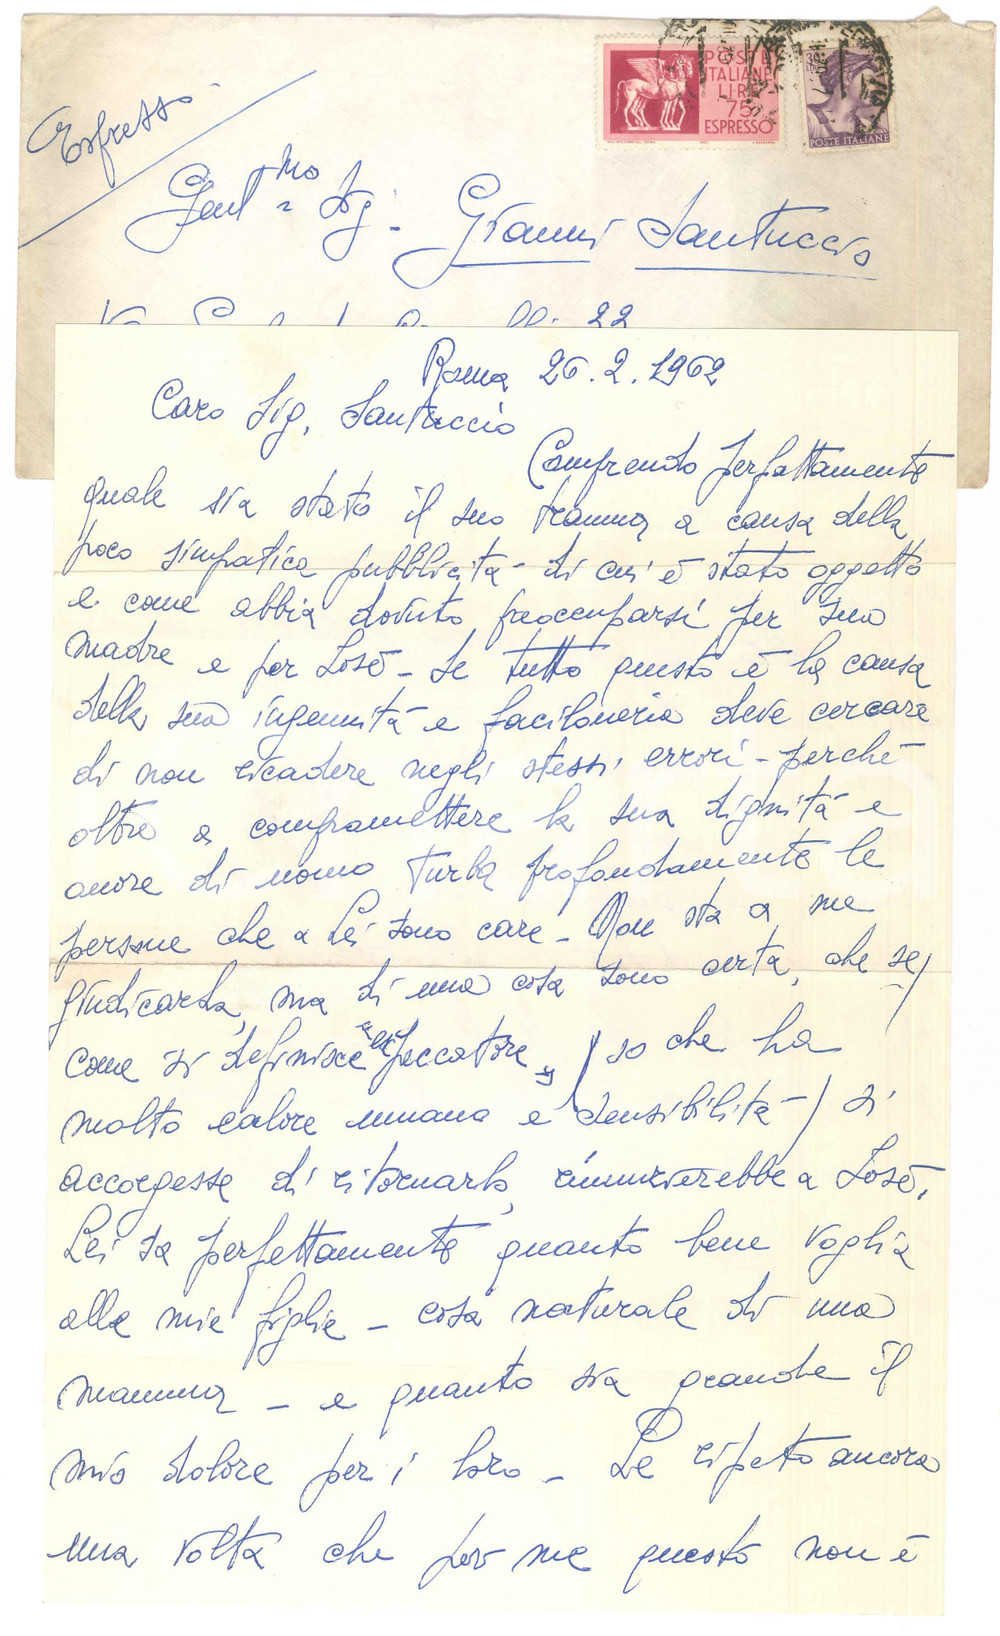 Espresso
POSTE
ITALIANE
LIRE
75
ESPRESSO
POSTE ITALIANE
Gent.mo Sig. Gianni Santuccio
22
Roma 26.2.1962
Caro Sig. Santuccio
Comprendo perfettamente
quale sia stato il suo trauma a causa della
poco simpatica pubblicità di cui è stato oggetto
e come abbia dovuto preoccuparsi per sua
madre e per Josè - Se tutto questo è la causa
della sua ingenuità e faciloneria deve cercare
di non ricadere negli stessi errori - perchè
oltre a compromettere la sua dignità e
onore di uomo turba profondamente le
persone che a Lei sono care - Non sta a me
giudicarla, ma di una cosa sono certa, che se/
come si definisce "un peccatore" / so che ha
molto calore umano e sensibilità / si
accorgesse di ritornarlo, rinuncerebbe a Josè.
Lei sa perfettamente quanto bene voglia
alle mie figlie - cosa naturale di una
mamma - e quanto sia grande il
mio dolore per loro - Le ripeto ancora
una volta che per me questo non è